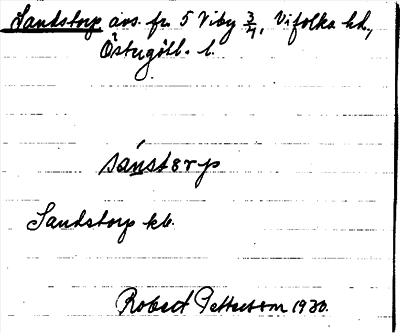 Sandstorp avs. fr. 5 Viby 3/4, Vifolka hd.,
Östergötl. l.
sánstərp
Sandstorp kb.
Robert Pettersson 1930.